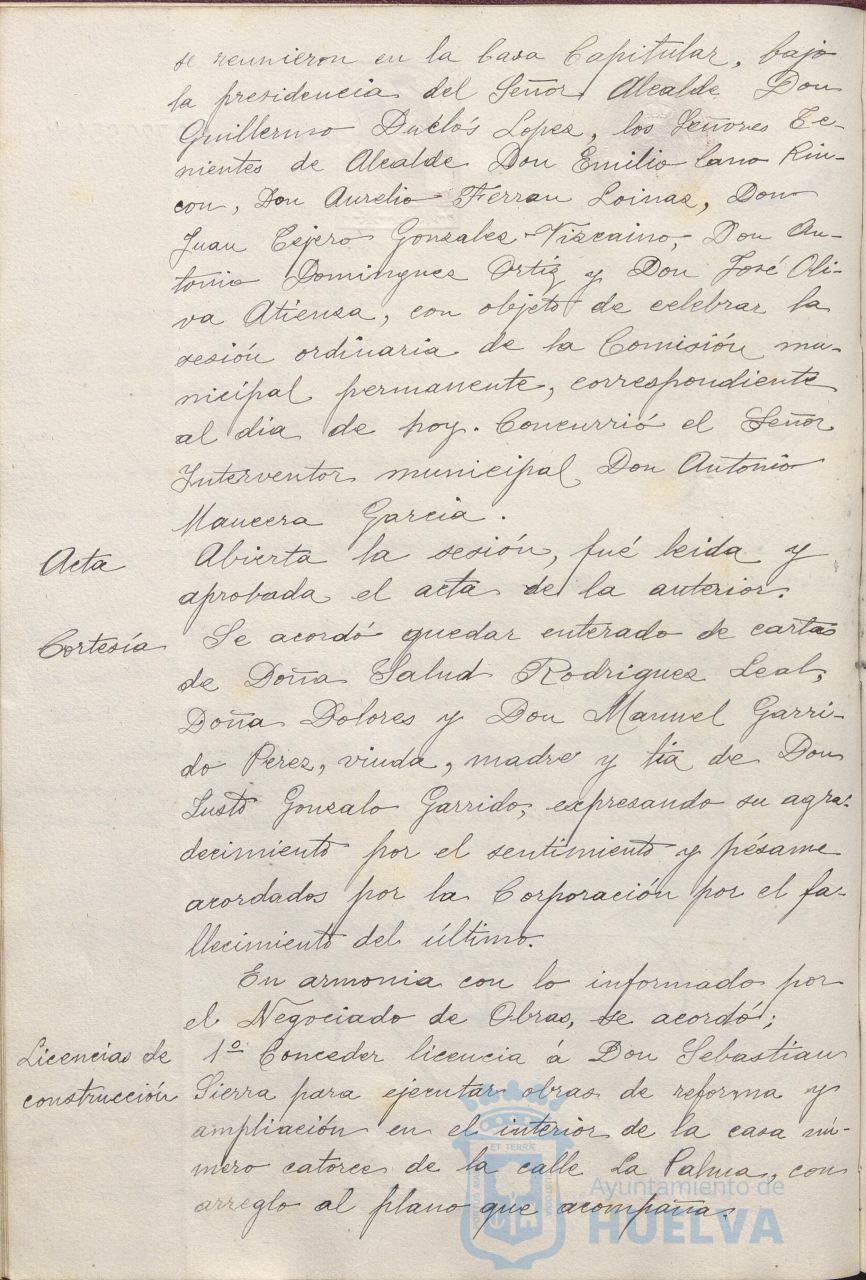 se reunieron en la Casa Capitular, bajo
la presidencia del Señor Alcalde Don
Guillermo Duclós Lopez, los Señores Te-
nientes de Alcalde Don Emilio Cano Rin-
con, Don Aurelio Ferran Loinaz, Don
Juan Tejero Gonzalez-Vizcaino, Don An-
tonio Dominguez Ortiz y Don José Oli-
va Atienza, con objeto de celebrar la
sesión ordinaria de la Comisión mu-
nicipal permanente, correspondiente
al dia de hoy. Concurrió el Señor
Interventor municipal Don Antonio
Mancera Garcia.
Acta Abierta la sesión, fué leida y
aprobada el acta de la anterior.
Cortesía Se acordó quedar enterado de cartas
de Doña Salud Rodriguez Leal,
Doña Dolores y Don Manuel Garri-
do Perez, viuda, madre y tia de Don
Justo Gonzalo Garrido, expresando su agra-
decimiento por el sentimiento y pésame
acordados por la Corporación por el fa-
llecimiento del último.
En armonia con lo informado por
el Negociado de Obras, se acordó:
Licencias de 1º Conceder licencia á Don Sebastian
construcción Sierra para ejecutar obras de reforma y
ampliación en el interior de la casa nú-
mero catorce de la calle La Palma, con
arreglo al plano que acompaña.
ET TERRÆ
Ayuntamiento de
HUELVA